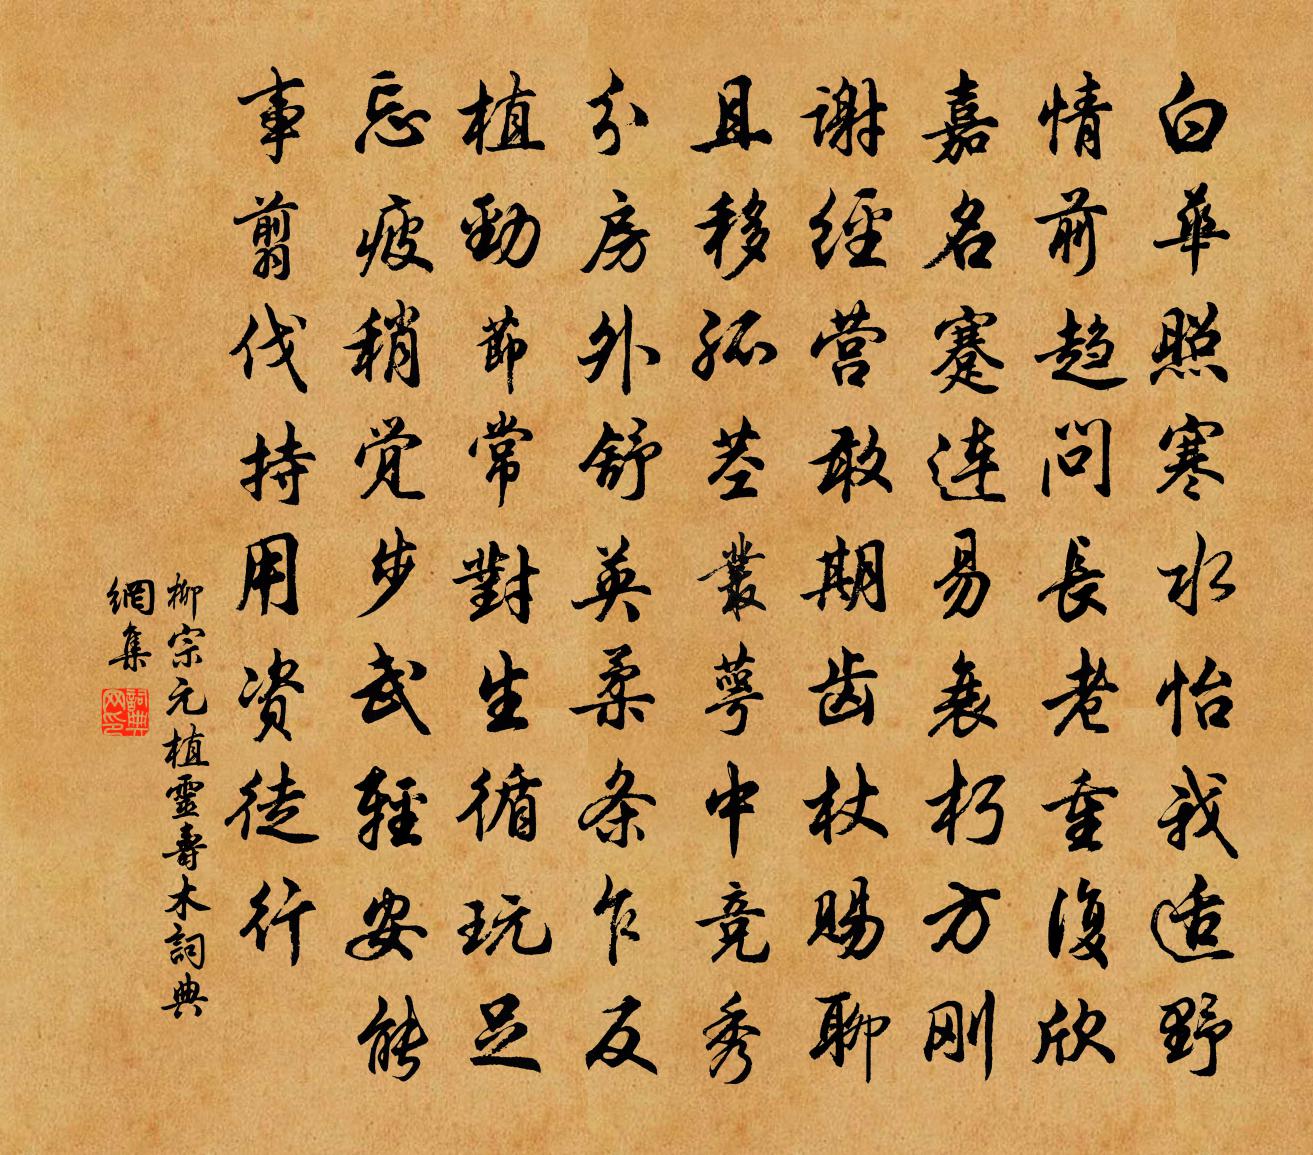 白華照寒水怡我适野
情前趋问長老重復欣
嘉名蹇连易衰朽方刚
谢經营敢期齿杖賜聊
且移孤茎叢萼中竞秀
分房外舒英柔条乍反
植勁節常對生循玩足
忘疲稍觉步武輕安能
事翦伐持用资徒行
柳宗元植靈壽木詞典
網集
詞典网印